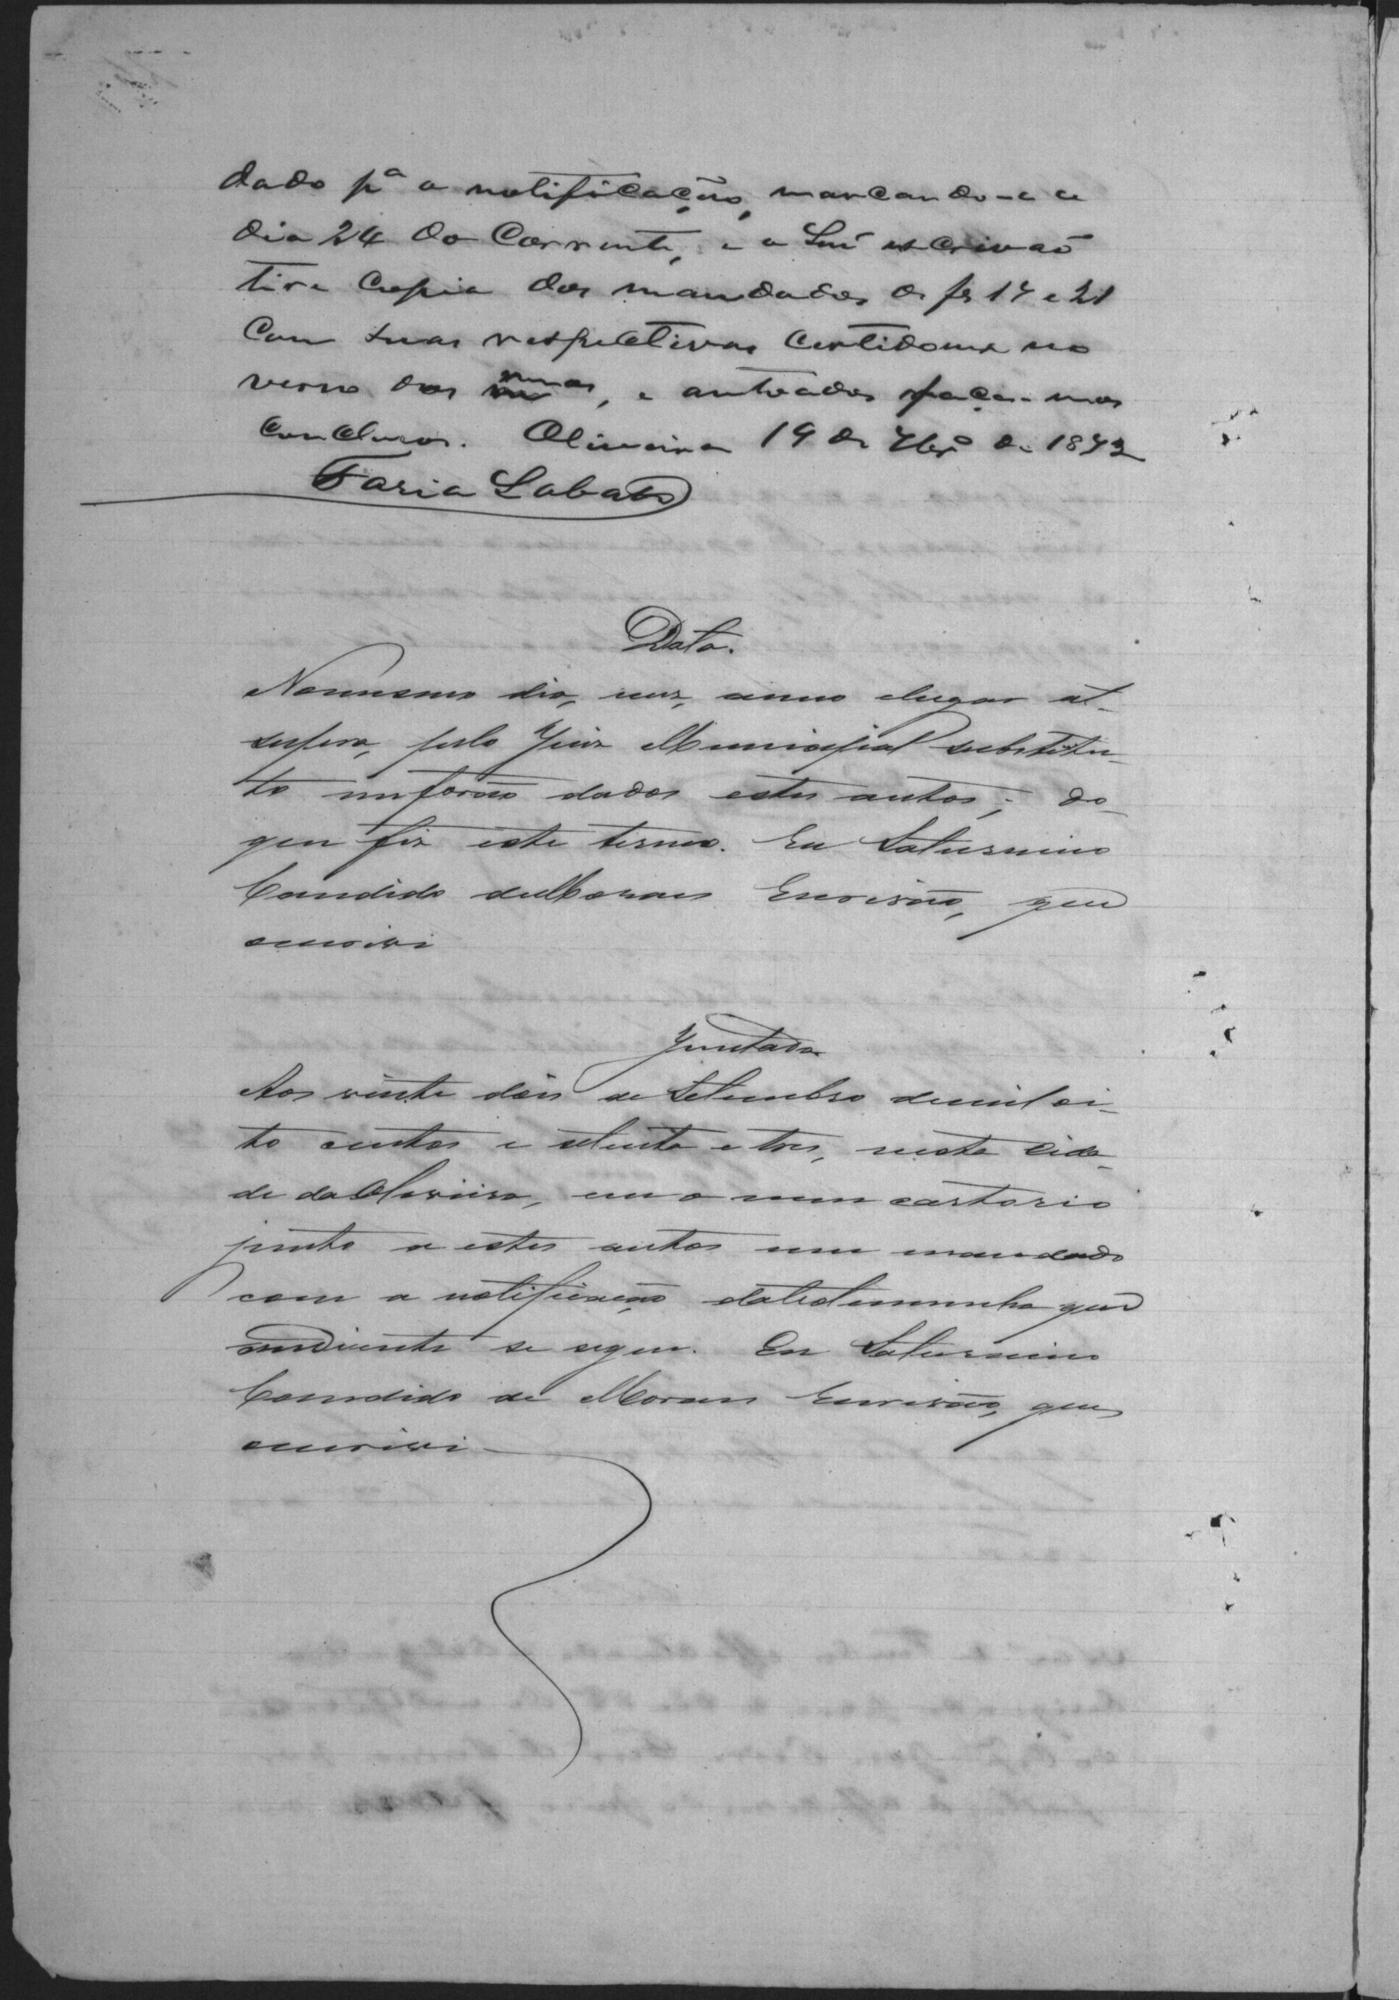 dado pª a notificação, marcando-se
dia 24 do Corrente, e o Snr escrivão
tire Copia dos mandados de fs 17 e 21
Com suas respectivas Certidoens no
verso dos mmos, e autoados faça-mos
Conclusos. Oliveira 19 de 7brº de 1873
Faria Lobato
Data.
No mesmo dia, mez, anno e lugar re-
supra, pelo Juiz Municipal substitu-
to me forão dados estes autos; do
que fiz este termo. Eu Saturnino
Candido de Moraes Escrivão, que
escrevi
Juntada
Aos vinte dois de Setembro de mil oi-
to centos e setenta e tres, nesta Cida-
de da Oliveira, em o meu cartorio
junto a estes autos um mandado
com a notificação da testemunha que
adiante se segue. Eu Saturnino
Candido de Moraes Escrivão, que
escrevi